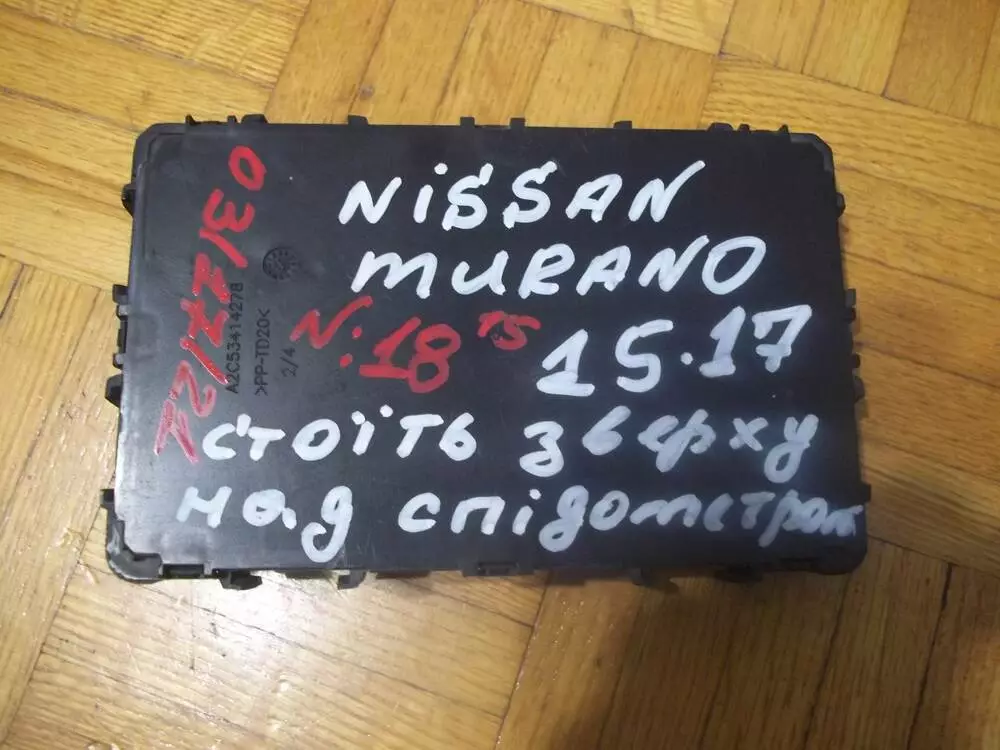 NISSAN
MURANO
15.17
стоїть зверху
над спідометром
N:18 TS
03/27/22
A2C53414278
>PP-TD20<
2/4